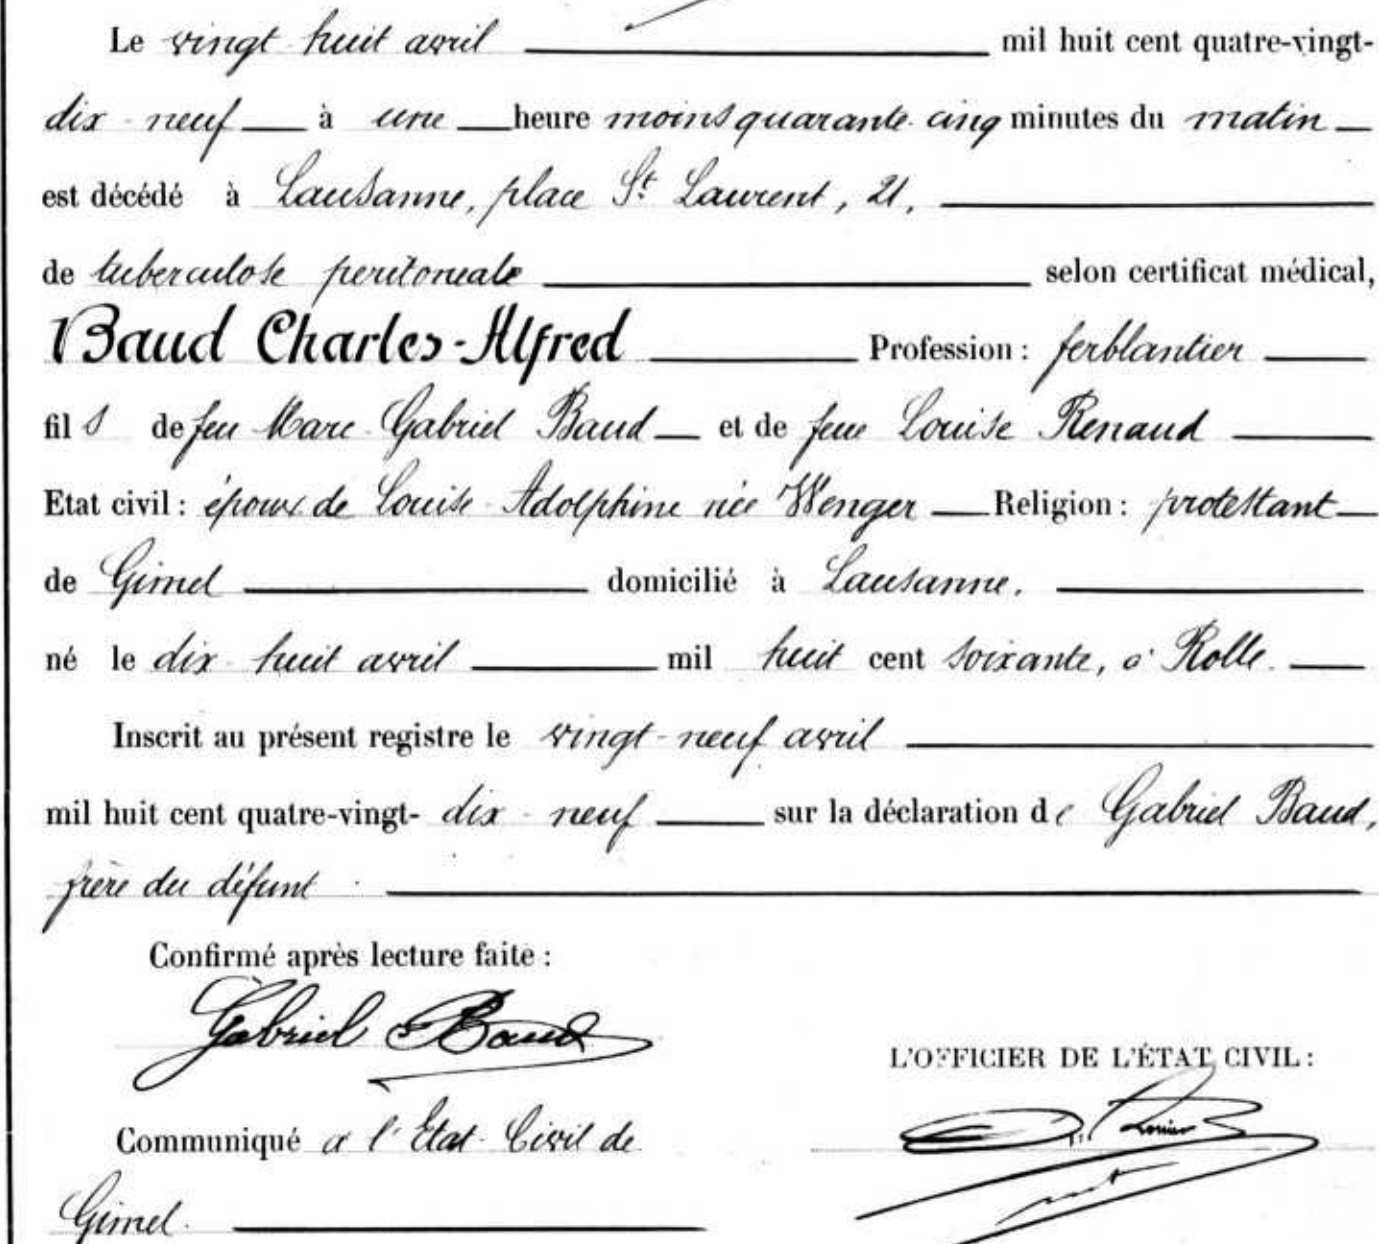 Le vingt huit avril mil huit cent quatre-vingt-
dix-neuf à une heure moins quarante-cinq minutes du matin
est décédé à Lausanne, place St. Laurent, 21,
de tuberculose peritoneale selon certificat médical,
Baud Charles-Alfred Profession: ferblantier
fils de feu Marc-Gabriel Baud et de feue Louise Renaud
Etat civil: époux de Louise-Adolphine née Wenger Religion: protestant
de Gimel domicilié à Lausanne.
né le dix-huit avril mil huit cent soixante, à Rolle.
Inscrit au présent registre le vingt-neuf avril
mil huit cent quatre-vingt-dix-neuf sur la déclaration de Gabriel Baud,
frère du défunt
Confirmé après lecture faite:
Gabriel Baud
L'OFFICIER DE L'ÉTAT CIVIL:
Communiqué à l'Etat-Civil de
Gimel.